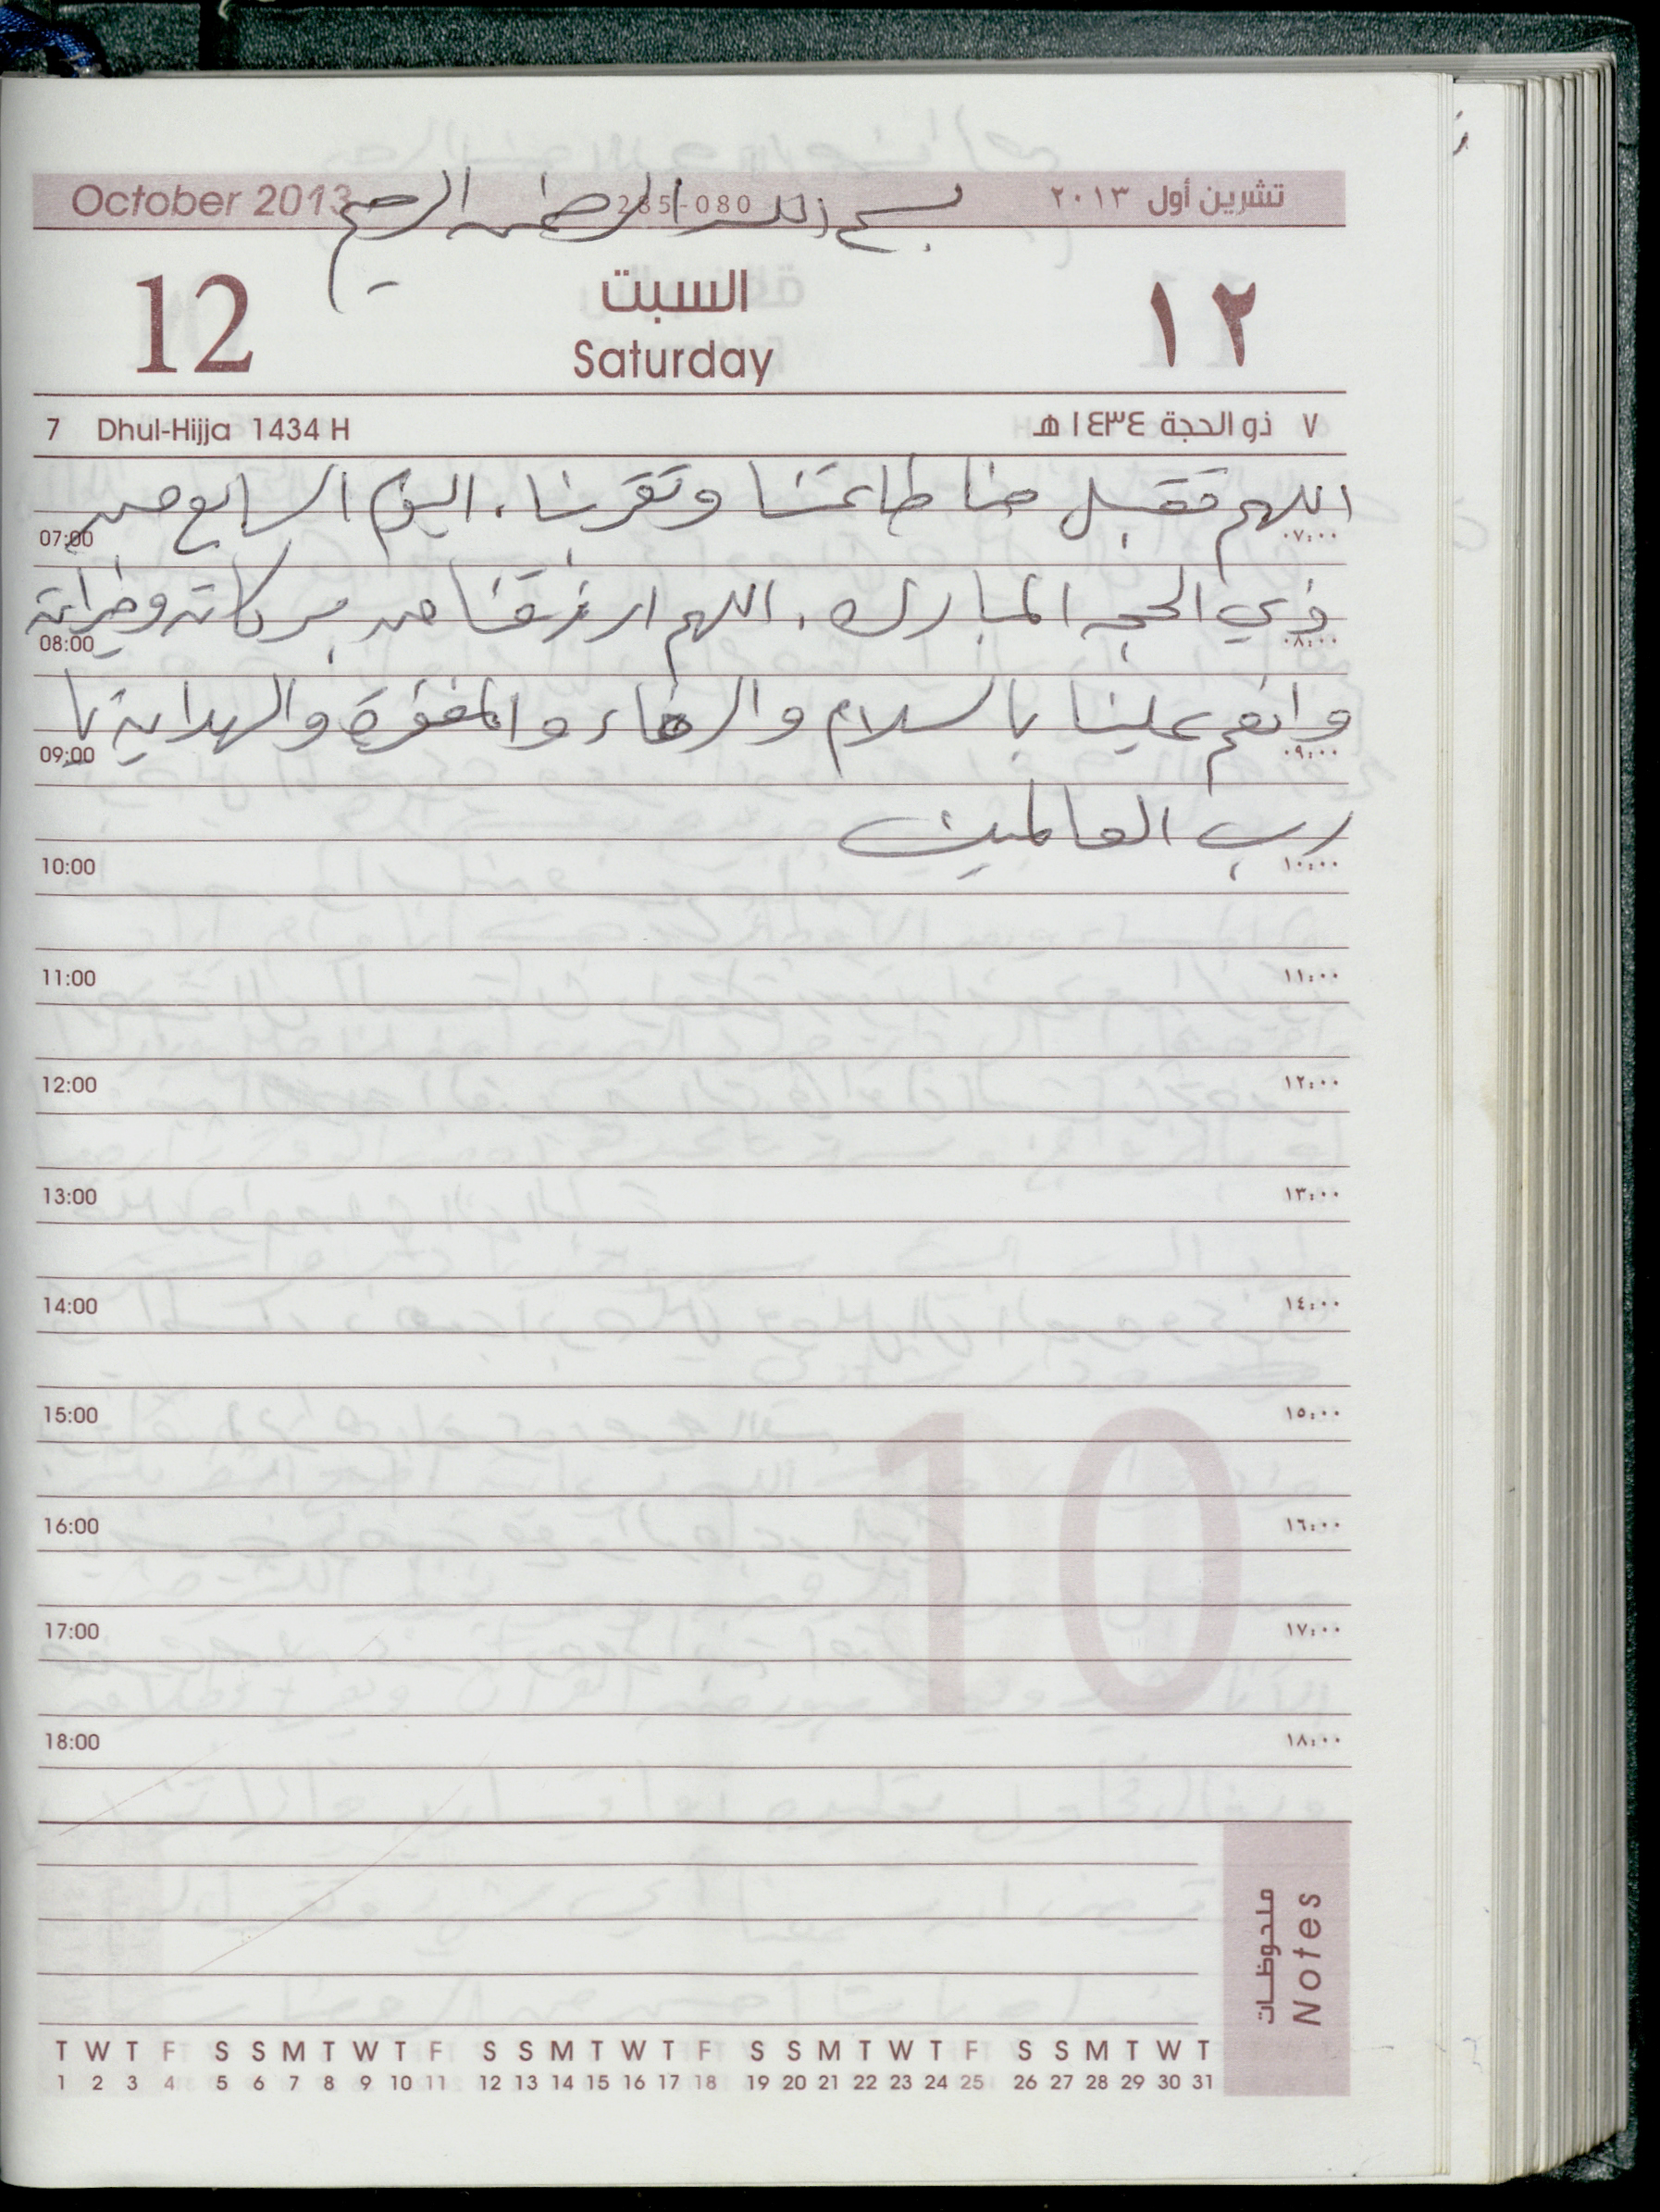 October 2013 285-080 تشرين أول ٢٠١٣
بسم الله الرحمن الرحيم
12 السبت ١٢
Saturday
7 Dhul-Hijja 1434 H ٧ ذو الحجة ١٤٣٤ هـ
اللهم تقبل منا طاعتنا وتقربنا. اليوم السابع من
07:00 ٠٧:٠٠
ذي الحجه المبارك. اللهم ارزقنا من بركاته وخيراته
08:00 ٠٨:٠٠
وانعم علينا بالسلام والرخاء والمغفرة والهداية يا
09:00 ٠٩:٠٠
رب العالمين
10:00 ١٠:٠٠
11:00 ١١:٠٠
12:00 ١٢:٠٠
13:00 ١٣:٠٠
14:00 ١٤:٠٠
15:00 ١٥:٠٠
10
16:00 ١٦:٠٠
17:00 ١٧:٠٠
18:00 ١٨:٠٠
ملحوظات
Notes
T W T F S S M T W T F S S M T W T F S S M T W T F S S M T W T
1 2 3 4 5 6 7 8 9 10 11 12 13 14 15 16 17 18 19 20 21 22 23 24 25 26 27 28 29 30 31